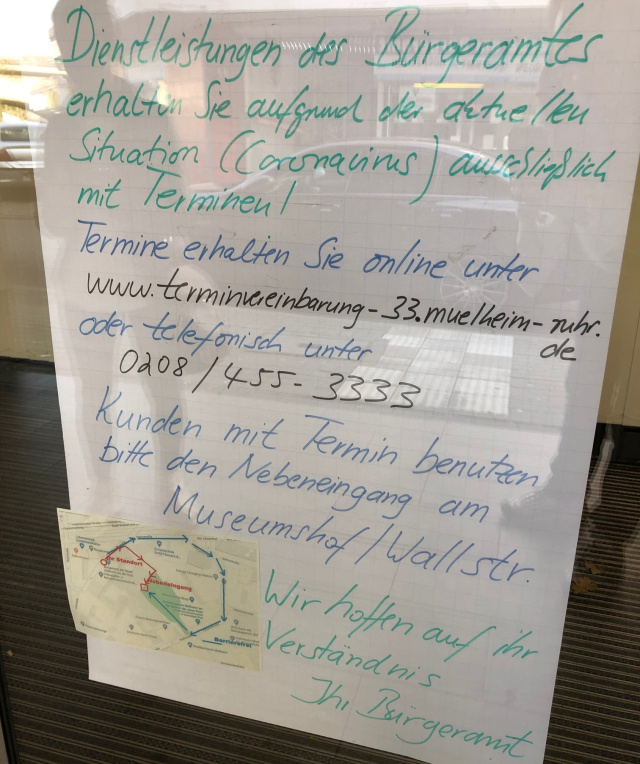 Dienstleistungen des Bürgeramtes
erhalten Sie aufgrund der aktuellen
Situation (Coronavirus) ausschließlich
mit Terminen!
Termine erhalten Sie online unter
www.terminvereinbarung-33.muelheim-ruhr.
de
oder telefonisch unter
0208/455-3333
Kunden mit Termin benutzen
bitte den Nebeneingang am
Museumshof/Wallstr.
Wir hoffen auf ihr
Verständnis
Ihr Bürgeramt
Ihr Standort
Nebeneingang
Barrierefrei